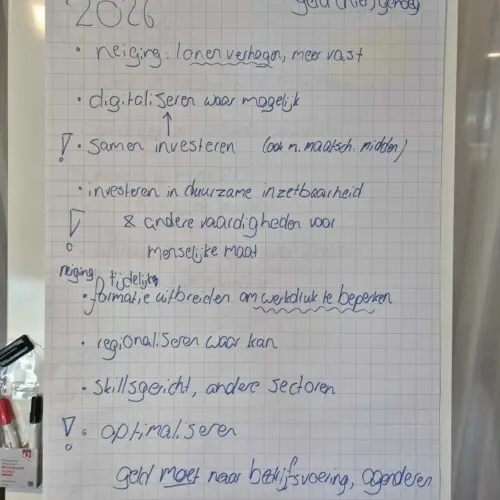 2026
geld (niet) genoeg
• neiging: lonen verhogen, meer vast
• digitaliseren waar mogelijk
! • samen investeren (ook m. maatsch. midden)
• investeren in duurzame inzetbaarheid
! & andere vaardigheden voor
menselijke maat
neiging: tijdelijk
• formatie uitbreiden om werkdruk te beperken
• regionaliseren waar kan
• skillsgericht, andere sectoren
! • optimaliseren
geld moet naar bedrijfsvoering, ogenderen